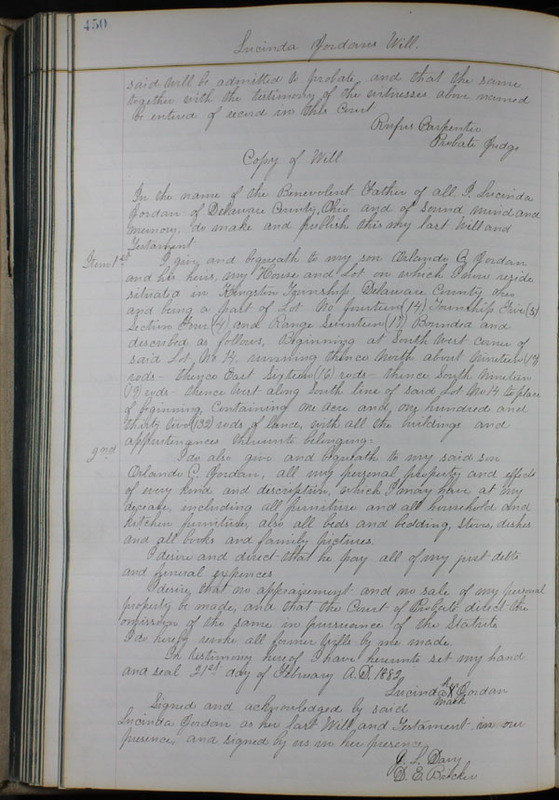 450
Lucinda Jordans Will.
said will be admitted to probate, and that the same
together with the testimony of the witnesses above named
be entered of record in this Court
Rufus Carpenter
Probate Judge
Copy of Will
In the name of the Benevolent Father of all I, Lucinda
Jordan of Delaware County, Ohio and of sound mind and
memory, do make and publish this my last Will and
Testament.
Item 1st I give and bequeath to my son Orlando C. Jordan
and his heirs, my House and Lot on which I now reside
situated in Kingston Township Delaware County Ohio
and being a part of Lot No fourteen (14) Township Five (5)
Section Four (4) and Range Seventeen (17) Bounded and
described as follows, Beginning at South West corner of
said Lot No 14, running thence North about Nineteen (19)
rods - thence East Sixteen (16) rods - thence South Nineteen
(19) rods - thence West along South line of said Lot No 14 to place
of beginning, Containing one acre and one hundred and
thirty two (132) rods of land, with all the buildings and
appurtenances thereunto belonging.
2nd I do also give and bequeath to my said son
Orlando C. Jordan, all my personal property and effects
of every kind and description, which I may have at my
decease, including all furniture and all household and
kitchen furniture, also all beds and bedding, stoves, dishes
and all books and family pictures.
I desire and direct that he pay all of my just debts
and funeral expences
I desire, that no appraisement and no sale of my personal
property be made, and that the Court of Probate direct the
omission of the same in pursuance of the Statute
I do hereby revoke all former Wills by me made.
In testimony hereof I have hereunto set my hand
and seal 21st day of February A.D. 1882.
Lucinda her X mark Jordan
Signed and acknowledged by said
Lucinda Jordan as her last Will and Testament in our
presence, and signed by us in her presence
J. L. Davy
D. E.